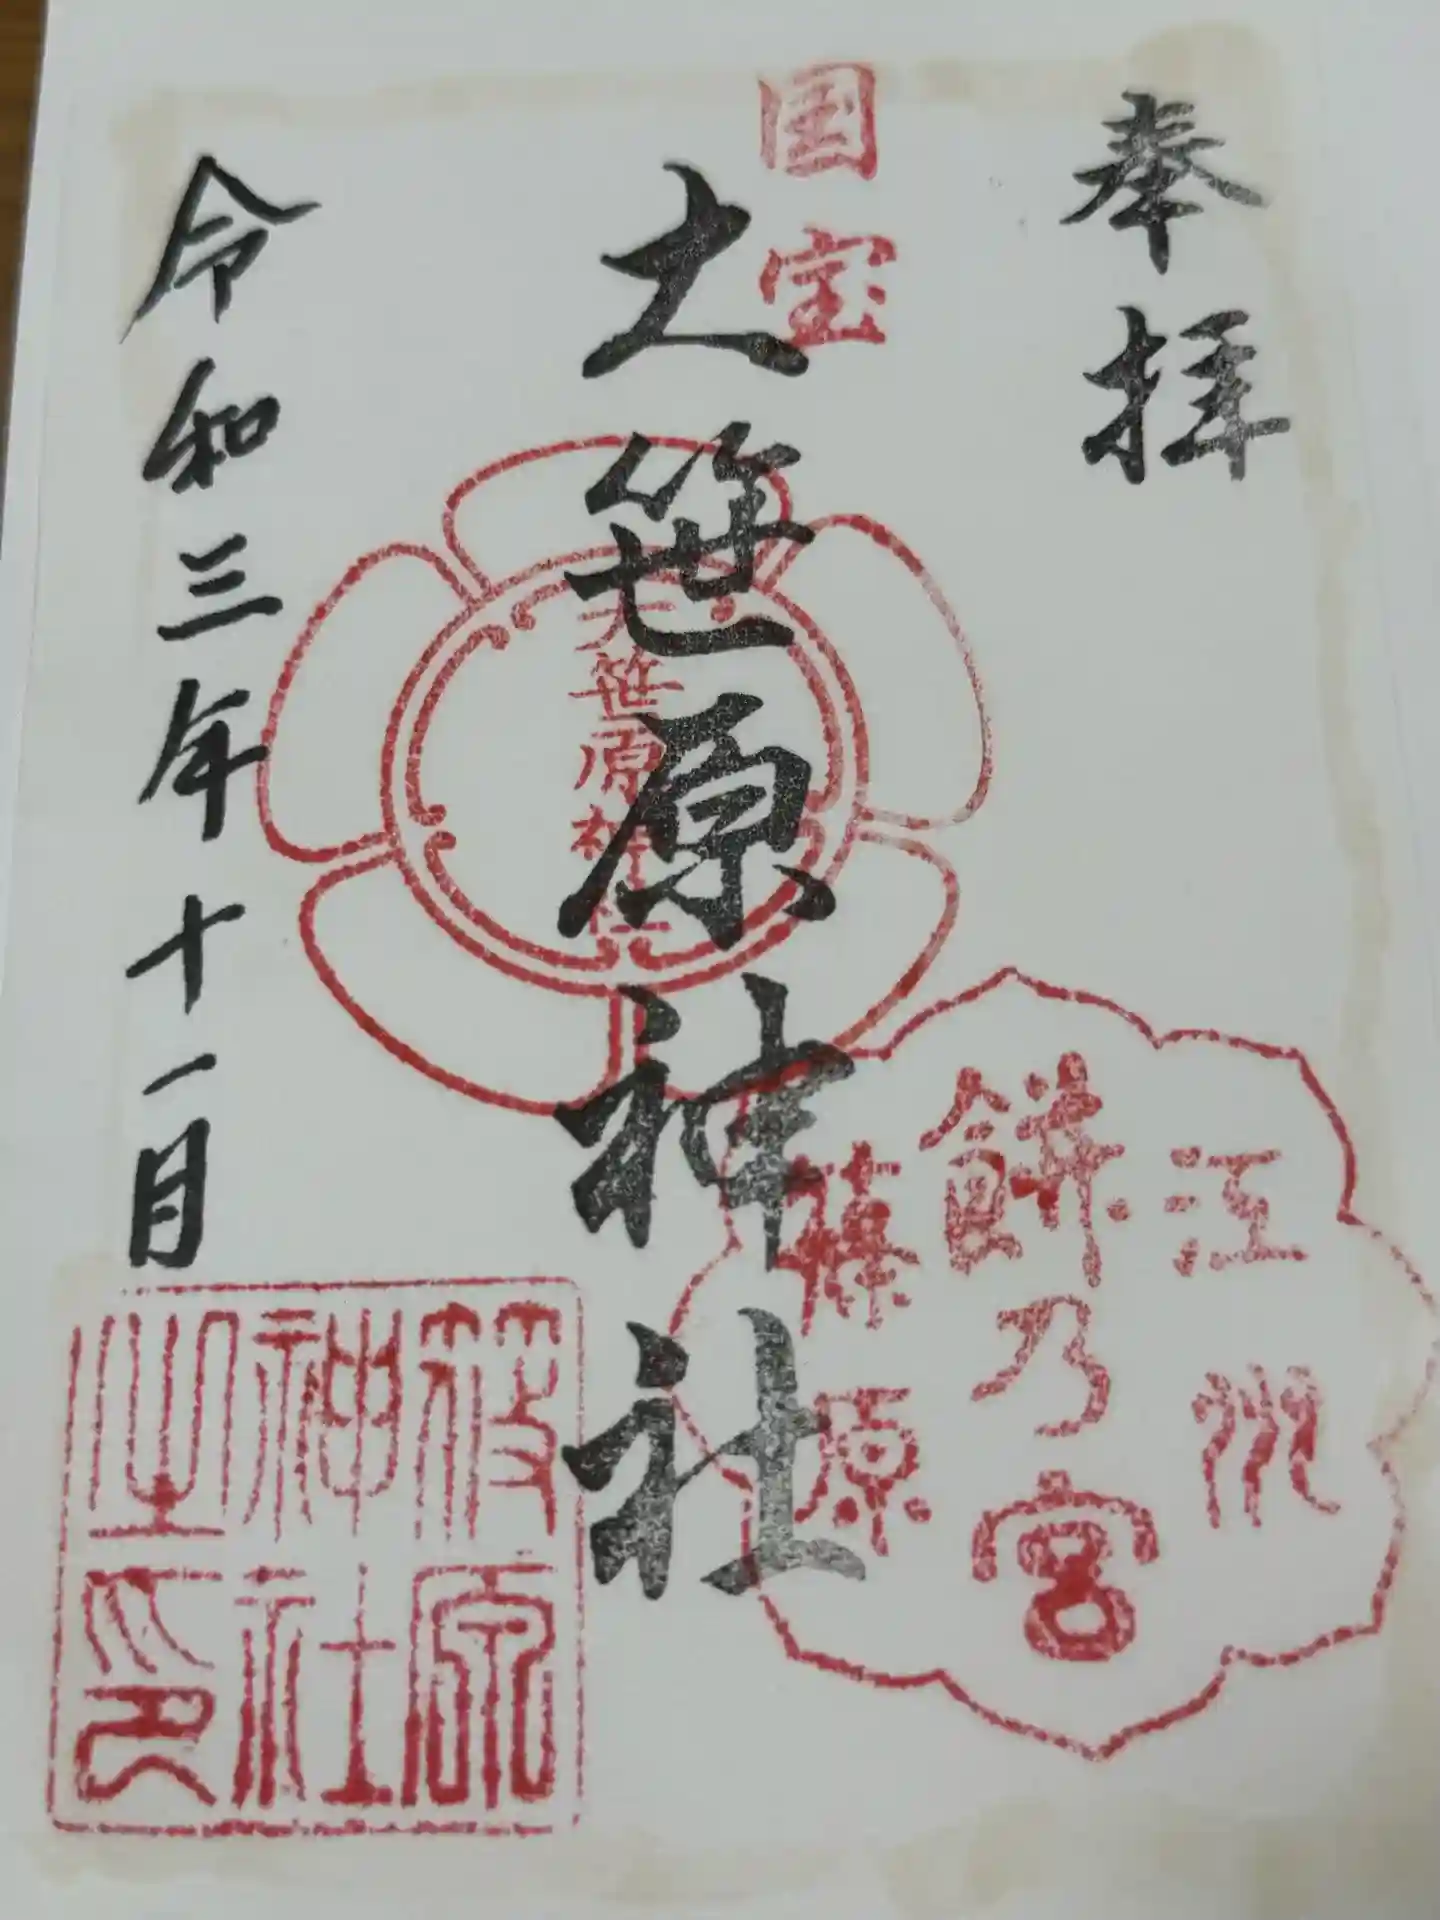 奉拝
国宝
大笹原神社
大笹原神社
江州
餅乃宮
篠原
令和三年十一月
原
神社
之印